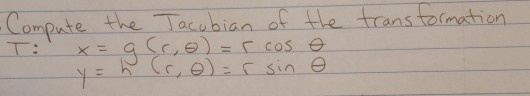 Compute the Jacobian of the transformation
T: x = g (r, θ) = r cos θ
y = h (r, θ) = r sin θ